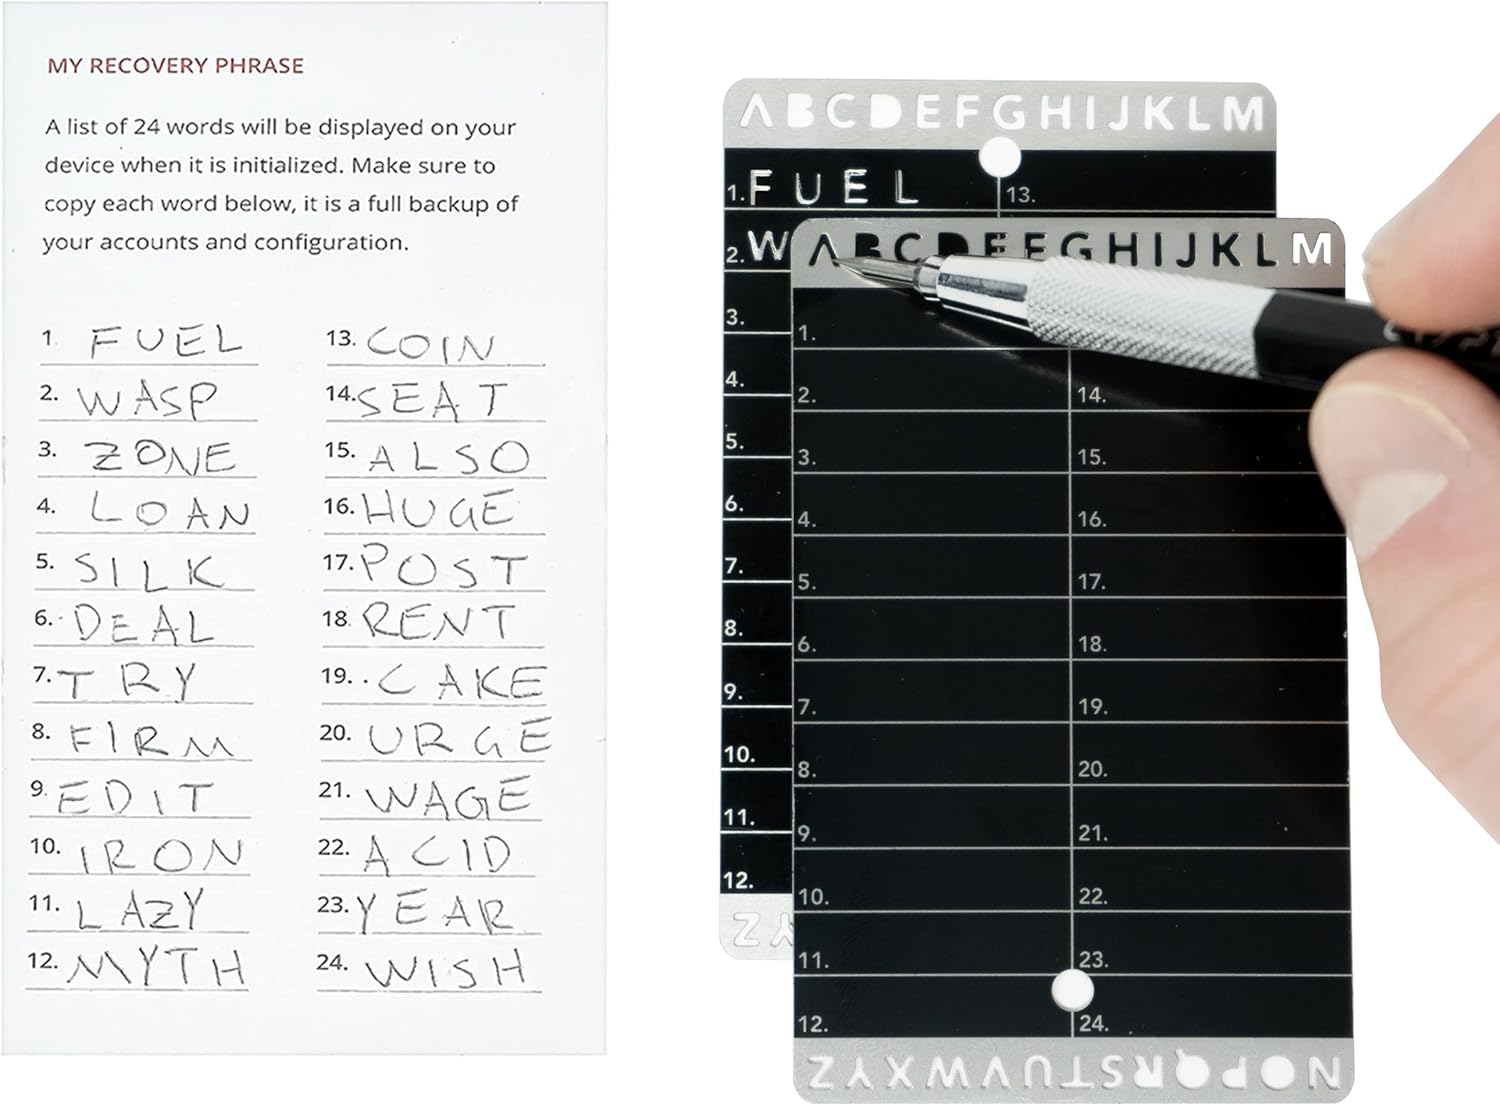 MY RECOVERY PHRASE
A list of 24 words will be displayed on your
device when it is initialized. Make sure to
copy each word below, it is a full backup of
your accounts and configuration.
1. FUEL
2. WASP
3. ZONE
4. LOAN
5. SILK
6. DEAL
7. TRY
8. FIRM
9. EDIT
10. IRON
11. LAZY
12. MYTH
13. COIN
14. SEAT
15. ALSO
16. HUGE
17. POST
18. RENT
19. CAKE
20. URGE
21. WAGE
22. ACID
23. YEAR
24. WISH
ABCDEFGHIJKLM
1. FUEL
13.
2. W
3.
4.
5.
6.
7.
8.
9.
10.
11.
12.
ZY
ABCDEFGHIJKLM
1.
2.
3.
4.
5.
6.
7.
8.
9.
10.
11.
12.
14.
15.
16.
17.
18.
19.
20.
21.
22.
23.
24.
ZYXWVUTSRQPON